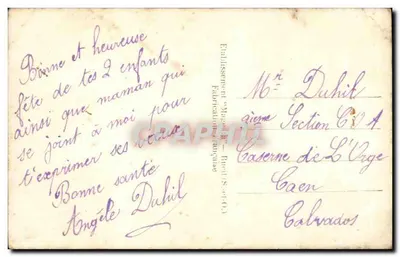 Bonne et heureuse
fête de tes 2 enfants
ainsi que maman qui
se joint à moi pour
t'exprimer ses vœux
Bonne santé
Angèle Duhil
Fabrication Française
Mr Duhil
Section C O A
Caserne de L'Orge
Caen
Calvados